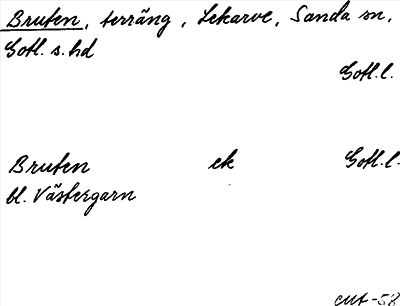 Bruten, terräng, Lekarve, Sanda sn,
Gotl. s. hd
Gotl. l.
Bruten ek Gotl. l.
bl. Västergarn